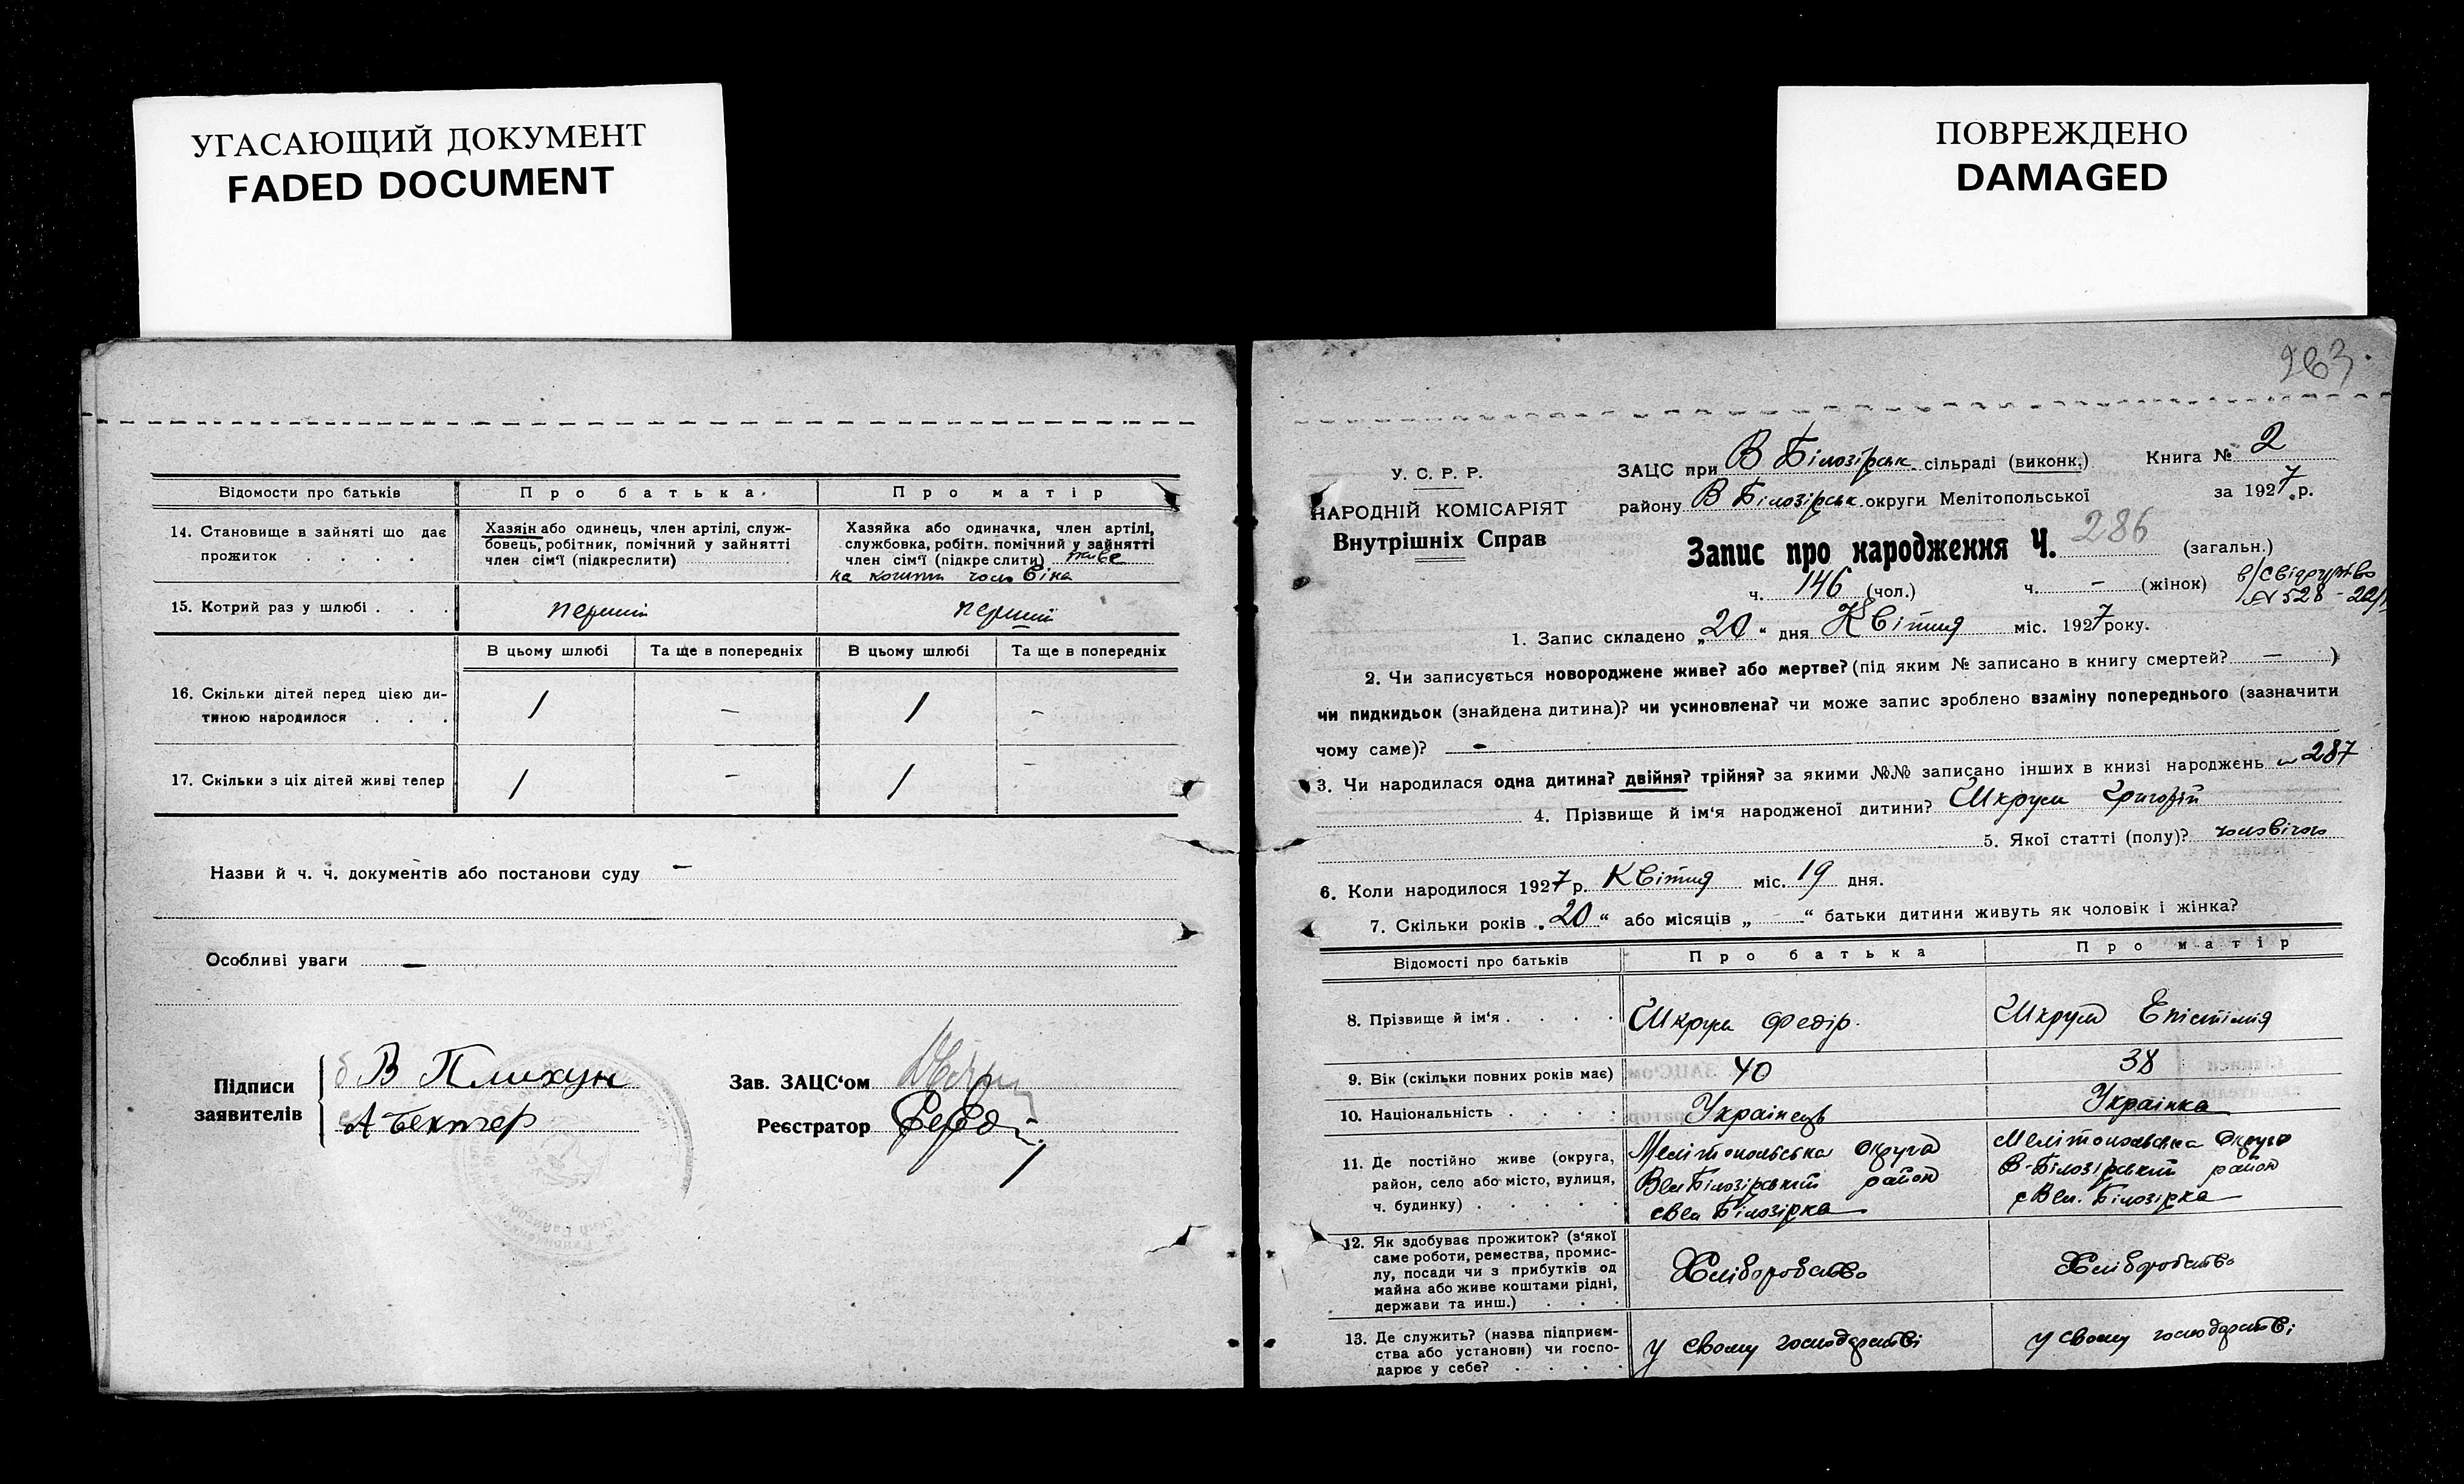 УГАСАЮЩИЙ ДОКУМЕНТ
FADED DOCUMENT
ПОВРЕЖДЕНО
DAMAGED
Відомости про батьків
Про батька.
Про матір
14. Становище в зайняті що дає прожиток . . . .
Хазяїн або одинець, член артілі, служ-
бовець, робітник, помічний у зайнятті
член сім'ї (підкреслити)
Хазяйка або одиначка, член артілі,
службовка, робітн. помічний у зайнятті
член сім'ї (підкреслити) живе
на кошти
15. Котрий раз у шлюбі . . .
перший
перший
В цьому шлюбі
Та ще в попередніх
В цьому шлюбі
Та ще в попередніх
16. Скільки дітей перед цією ди-
тиною народилося . . .
1
–
1
–
17. Скільки з ціх дітей живі тепер
1
–
1
–
Назви й ч. ч. документів або постанови суду –
Особливі уваги –
Підписи
заявителів
В Плихун
Зав. ЗАЦС'ом
Реєстратор
263.
У. С. Р. Р.
НАРОДНІЙ КОМІСАРІЯТ
Внутрішніх Справ
ЗАЦС при В Білозірськ. сільраді (виконк.)
Книга № 2
району В Білозірськ. округи Мелітопольської
за 1927 р.
Запис про народження Ч. 286 (загальн.)
ч. 146 (чол.)
ч. – (жінок)
в/свідоцтво
№ 528 -
1. Запис складено „20“ дня Квітня міс. 1927 року.
2. Чи записується новороджене живе? або мертве? (під яким № записано в книгу смертей? – )
чи пидкидьок (знайдена дитина)? чи усиновлена? чи може запис зроблено взаміну попереднього (зазначити
чому саме)? –
3. Чи народилася одна дитина? двійня? трійня? за якими №№ записано інших в книзі народжень 287
4. Прізвище й ім'я народженої дитини? Шкруп Григорій
5. Якої статті (полу)? чоловічої
6. Коли народилося 1927 р. Квітня міс. 19 дня.
7. Скільки років „20“ або місяців „ “ батьки дитини живуть як чоловік і жінка?
Відомості про батьків
Про батька
Про матір
8. Прізвище й ім'я . . . .
Шкруп Федір.
Шкруп Епістімія
9. Вік (скільки повних років має)
40
38
10. Національність . . . .
Українець
Українка
11. Де постійно живе (округа,
район, село або місто, вулиця,
ч. будинку) . . . . .
Мелітопольська округа
Вел Білозірський район
с Вел Білозірка
Мелітопольська округа
В-Білозірський район
с Вел. Білозірка
12. Як здобуває прожиток? (з'якої
саме роботи, ремества, промис-
лу, посади чи з прибутків од
майна або живе коштами рідні,
держави та инш.) . . .
Хліборобство
Хліборобство
13. Де служить? (назва підприєм-
ства або установи) чи госпо-
дарює у себе? . . . .
у свому господарстві
у свому господарстві